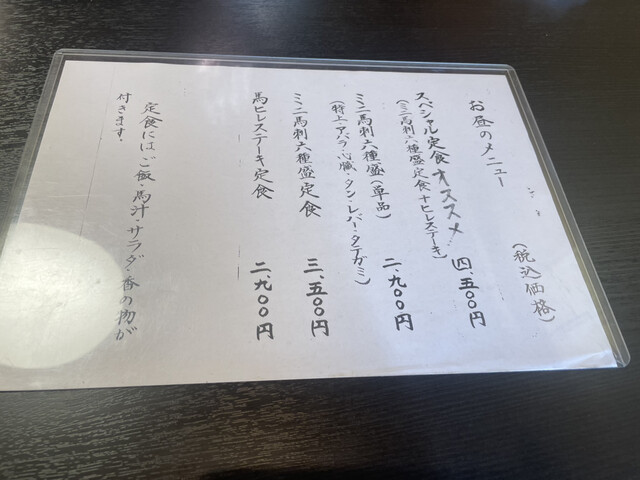 お昼のメニュー
(税込価格)
スペシャル定食 オススメ 四、五〇〇円
(ミニ馬刺六種盛定食+ヒレステーキ)
ミニ馬刺六種盛(単品) 二、九〇〇円
(特上・アバラ・心臓・タン・レバー・タテガミ)
ミニ馬刺六種盛定食 三、五〇〇円
馬ヒレステーキ定食 二、九〇〇円
定食にはご飯・馬汁・サラダ・香の物が
付きます。